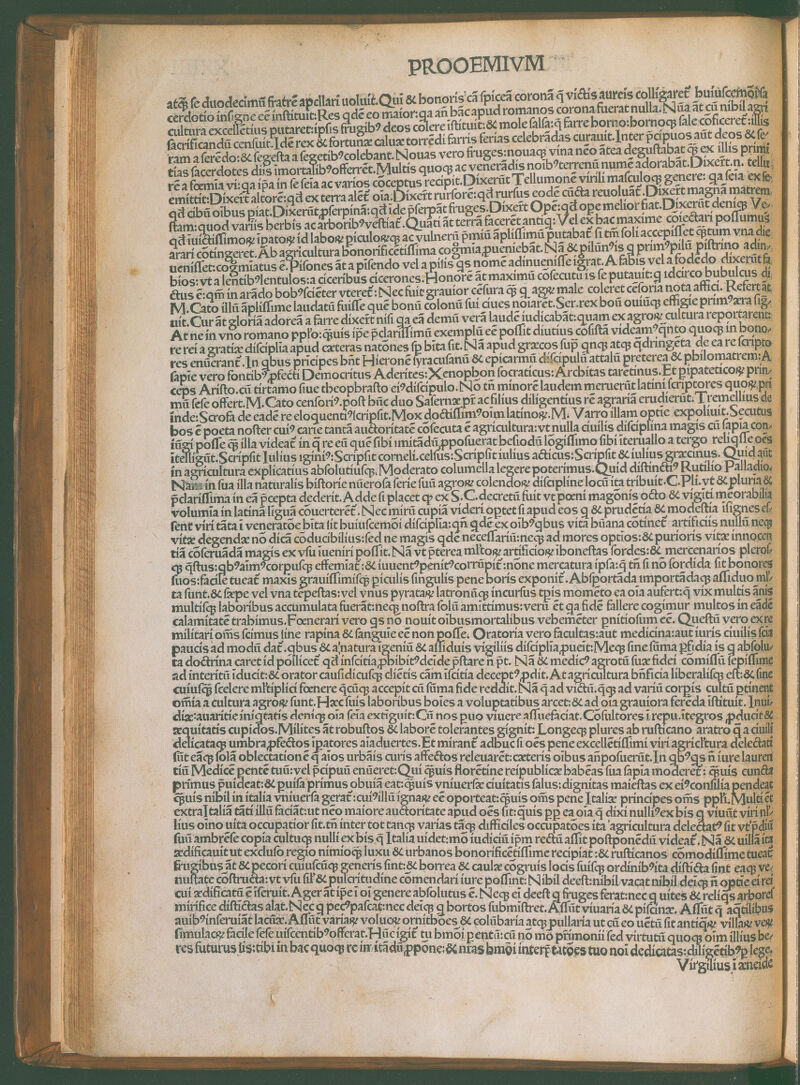 PROOEMIVM
atq̃ se duodecimũ fratrẽ apellari uoluit. Qui & honoris cã spiceã coronã q̃ victis aureis colligaret̃ huiuscemõi sa
cerdotio insigne eẽ instituit: Res qdẽ eo maior: qa añ hãc apud romanos corona fuerat nulla. Nũa ãt cũ nihil agri
cultura excellẽtius putaret: ipsis frugibꝰ deos colere istituit: & mole salsa: q̃ farre horno: hornoqꝫ sale cõficeret̃: illis
sacrificandũ censuit. Idẽ rex & fortunæ caluæ torrẽdi farris ferias celebrãdas curauit. Inter p̃cipuos aũt deos & se
ram a serẽdo: & segesta a segetibꝰ colebant. Nouas vero fruges: nouaqꝫ vina nẽo ãtea degustabat q̃ ex illis primi
tias sacerdotes diis imortalibꝰ offerrẽt. Multis quoqꝫ ac venerãdis noibꝰ terrenũ numẽ adorabãt. Dixert̃ .n. tellu
rẽ a fœmia vi: qa ipa in se seia ac varios cõceptus recipit. Dixerũt Tellumonẽ virili masculoqꝫ genere: qa seia ex se
emittit: Dixert̃ altorẽ: qd ex terra alẽt̃ oia. Dixert̃ rursorẽ: qd rursus eodẽ cũcta reuoluãt̃. Dixert̃ magnã matrem
qd cibũ oibus piat. Dixerũt ꝓserpinã: qd ide ꝓserpãt fruges. Dixert̃ Opẽ: qd ope melior fiat. Dixerũt deniqꝫ Ve
stam: quod variis herbis ac arboribꝰ vestiat̃. Quãti ãt terrã facerẽt antiq: Vel ex hac maxime cõiectari possumus
qd iuictissimoꝝ ipatoꝝ id laboꝝ piculoꝝqꝫ ac vulnerũ p̃miũ ãplissimũ putabat̃ si tm̃ soli accepisset q̃tum vna die
arari cõtingeret. Ab agricultura honorificẽtissima cognia ꝓueniebãt. Nã & pilũnꝰis q primꝰ pilũ pistrino adin
uenisset: cogmiatus ẽ. Pisones ãt a pisendo vel a pilis qs nomẽ adinuenisse igrat. A fabis vel a fodẽdo dixerũt fa
bios: vt a lentibꝰ lentulos: a ciceribus cicerones. Honorẽ ãt maximũ cõsecutũ is se putauit: q idcirco bubulcus di
ctus ẽ: qm̃ in arãdo bobꝰ sciẽter vteret̃: Nec fuit grauior cẽsura q̃ q agꝝ male coleret cẽsoria nota affici. Refert ãt
M. Cato illũ ãplissime laudatũ fuisse quẽ bonũ colonũ sui ciues noiaret. Ser. rex boũ ouiũqꝫ effigie primꝰ æra sig
uit. Cur ãt gloriã adoreã a farre dixert̃ nisi qa eã demũ verã laudẽ iudicabãt: quam ex agroꝝ cultura reportarent:
At ne in vno romano pplo: q̃uis ipẽ p̃clarissimũ exemplũ eẽ possit diutius cõsistã videamꝰ q̃nto quoqꝫ in hono
re rei a gratiæ disciplia apud cæteras natões sp̃ hita sit. Nã apud græcos sup̃ qnqꝫ atqꝫ qdringẽta de ea re scripto
res enũerant̃. In qbus pricipes hñt Hieronẽ syracusanũ & epicarmũ discipulũ attalũ preterea & philomatrem: A
sapie vero fontibꝰ ꝓfecti Democritus Aderites: Xenophon socraticus: Architas tarẽtinus. Et pipateticoꝝ prin
ceps Aristo. cũ tirtamo siue theophrasto eiꝰ discipulo. No tñ minorẽ laudem meruerũt latini scriptores quoꝝ pri
mũ sese offert. M. Cato censoriꝰ. post hũc duo Sasernæ pr̃ ac filius diligentius rẽ agrariã erudierũt. Tremellius de
inde: Scrofa de eadẽ re eloquentiꝰ scripsit. Mox doctissimꝰ oim latinoꝝ. M. Varro illam optie expoliuit. Secutus
hos ẽ poeta noster cuiꝰ carie tantã auctoritatẽ cõsecuta ẽ agricultura: vt nulla ciuilis disciplina magis cũ sapia con
iũgi posse qꝫ illa videat̃ in q̃ re eũ quẽ sibi imitãdũ ꝓposuerat hesiodũ lõgissimo sibi iteruallo a tergo reliqsse oẽs
itelligũt. Scripsit Iulius iginiꝰ: Scripsit corneli. celsus: Scripsit iulius acticus: Scripsit & iulius græcinus. Quid aũt
in agricultura explicatius absolutiusqꝫ. Moderato columella legere poterimus. Quid distinctiꝰ Rutilio Palladio.
Nam in sua illa naturalis historie nũerosa serie suũ agroꝝ colendoꝝ discipline locũ ita tribuit. C. Pli. vt & pluria &
p̃clarissima in eã p̃cepta dederit. Adde si placet qꝫ ex S. C. decretũ fuit vt pœni magonis octo & vigiti mẽorabilia
volumia in latinã liguã cõuerterẽt̃. Nec mirũ cupiã videri optet si apud eos q & prudẽtia & modestia isignes es
sent viri tãta i veneratõe hita sit huiuscemõi disciplia: qñ qdẽ ex oibꝰ qbus vita hũana cõtinet̃ artificiis nullũ neqꝫ
vitæ degendæ nõ dicã cõducibilius: sed ne magis qdẽ necessariũ: neqꝫ ad mores optios: & purioris vitæ innocen
tiã cõseruãdã magis ex vsu iueniri possit. Nã vt p̃terea mltoꝝ artificioꝝ ihonestas sordes: & mercenarios plerosqꝫ
qꝫ q̃stus: qbꝰ aimꝰ corpusqꝫ effemiat̃: & iuuentꝰ penitꝰ corrũpit̃: nõne mercatura ipsa: q̃ tñ si nõ sordida sit honores
suos: facile tueat̃ maxis grauissimisqꝫ piculis singulis pene horis exponit̃. Absportãda importãdaqꝫ assiduo ml
ta sunt. & sæpe vel vna tẽpestas: vel vnus pyrataꝝ latronũqꝫ incursus tpis momẽto ea oia aufert: q̃ vix multis ãnis
multisqꝫ laboribus accumulata fuerãt: neqꝫ nostra solũ amittimus: verũ et̃ qa fidẽ fallere cogimur multos in eãdẽ
calamitatẽ trabimus. Fœnerari vero qs nõ nouit oibus mortalibus vehemẽter pnitiosum eẽ. Questũ vero ex re
militari oms̃ scimus sine rapina & sanguie eẽ non posse. Oratoria vero facultas: aut medicina: aut iuris ciuilis scia
paucis ad modũ dat̃. qbus & a natura igeniũ & assiduis vigiliis disciplia ꝓuẽit: Meqꝫ sine sũma p̃fidia is q absolu
ta doctrina caret id pollicet̃ qd inscitia ꝓhibitꝰ deide p̃stare ñ pt̃. Nã & medicꝰ agrotũ suæ fidei comissũ sepissime
ad interitũ iducit: & orator causidicusqꝫ cliẽtis cãm iscitia deceptꝰ ꝓdit. At agricultura bñficia liberalisqꝫ est: & sine
cuiusqꝫ scelere mltiplici fœnere qcũqꝫ accepit cũ sũma fide reddit. Nã q̃ ad victũ. qꝫqꝫ ad variũ corpis cultũ ptinent
om̃ia a cultura agroꝝ sunt. Hæc suis laboribus hoies a voluptatibus arcet: & ad oia grauiora ferẽda istituit. Inui
diæ: auaritie iniqtatis deniqꝫ oia seia extiguit: Cũ nos puo viuere assuefaciat. Cõsultores i repu. itegros ꝓducit &
æquitatis cupidos. Milites ãt robustos & laborẽ tolerantes gignit: Longeqꝫ plures ab rusticano aratro q̃ a ciuili
delicataqꝫ umbra ꝓfectos ipatores aiaduertes. Et mirant̃ adhuc si oẽs pene excellẽtissimi viri agricultura delectati
sũt eãqꝫ solã oblectationẽ q̃ aios urbãis curis affectos releuarẽt: cæteris oibus añposuerũt. In qbꝰ qs ñ iure laurẽ
tiũ Medicẽ pentẽ tuũ: vel p̃cipuũ enũeret: Qui q̃uis florẽtine reipublicæ habẽas sua sapia moderet̃: q̃uis cuncta
primus p̃uideat: & puisa primus obuiã eat: q̃uis vniuersæ ciuitatis salus: dignitas maiestas ex eiꝰ cõsilia pendeat
q̃uis nihil in italia vniuersa gerat̃: cuiꝰ illũ ignaꝝ eẽ oporteat: q̃uis oms̃ pene Italiæ principes oms̃ ppli. Multi et̃
extra Italiã tãti illũ faciãt: ut neo maiore auctoritate apud oẽs sit: quis pp ea oia q̃ dixi nulliꝰ ex his q viuũt viri nl
lius oino uita occupatior sit. tñ inter tot tanqꝫ varias tãqꝫ difficiles occupatões ita agricultura delectat̃ꝰ sit vt p̃diũ
suũ ambrẽse copia cultuqꝫ nulli ex his q̃ Italia uidet: mõ iudiciũ ipm̃ rectũ assit postponẽdũ videat̃. Nã & uillã ita
ædificauit ut excluso regio nimioqꝫ luxu & urbanos honorificẽtissime recipiat: & rusticanos cõmodissime tueat̃
frugibus ãt & pecori cuiuscũqꝫ generis sint: & horrea & caulæ cõgruis locis suisqꝫ ordinibꝰ ita disticta sint eaqꝫ ve
nustate cõstructa: vt vsu sil & pulcritudine cõmendari iure possint: Nihil deest: nihil vacat nihil deiqꝫ ñ optie ei rei
cui ædificatũ ẽ iseruit. Ager ãt ipẽ i oi genere absolutus ẽ. Neqꝫ ei deest q̃ fruges ferat: nec q̃ uites & reliqs arbores
mirifice distictas alat. Nec q̃ pecꝰ pascat: nec deiqꝫ q̃ hortos submistret. Assũt viuaria & piscinæ. Assũt q̃ aqtilibus
auibꝰ inseruiãt lacũæ. Assũt variaꝝ volucꝝ ornithões & colũbaria atqꝫ pullaria ut cũ eo uẽtũ sit antiqꝝ villaꝝ veꝝ
simulacꝝ facile sese uisentibꝰ offerat. Hũc igit̃ tu hmõi pentũ: cũ nõ mõ pr̃imonii sed virtutũ quoqꝫ oim illius he
res futurus sis: tibi in hac quoqꝫ re imitãdũ ꝓpone: & nr̃as hmõi interp̃tatões tuo noi dedicatas: diligẽtibꝰ p lege.
Virgilius i æneide